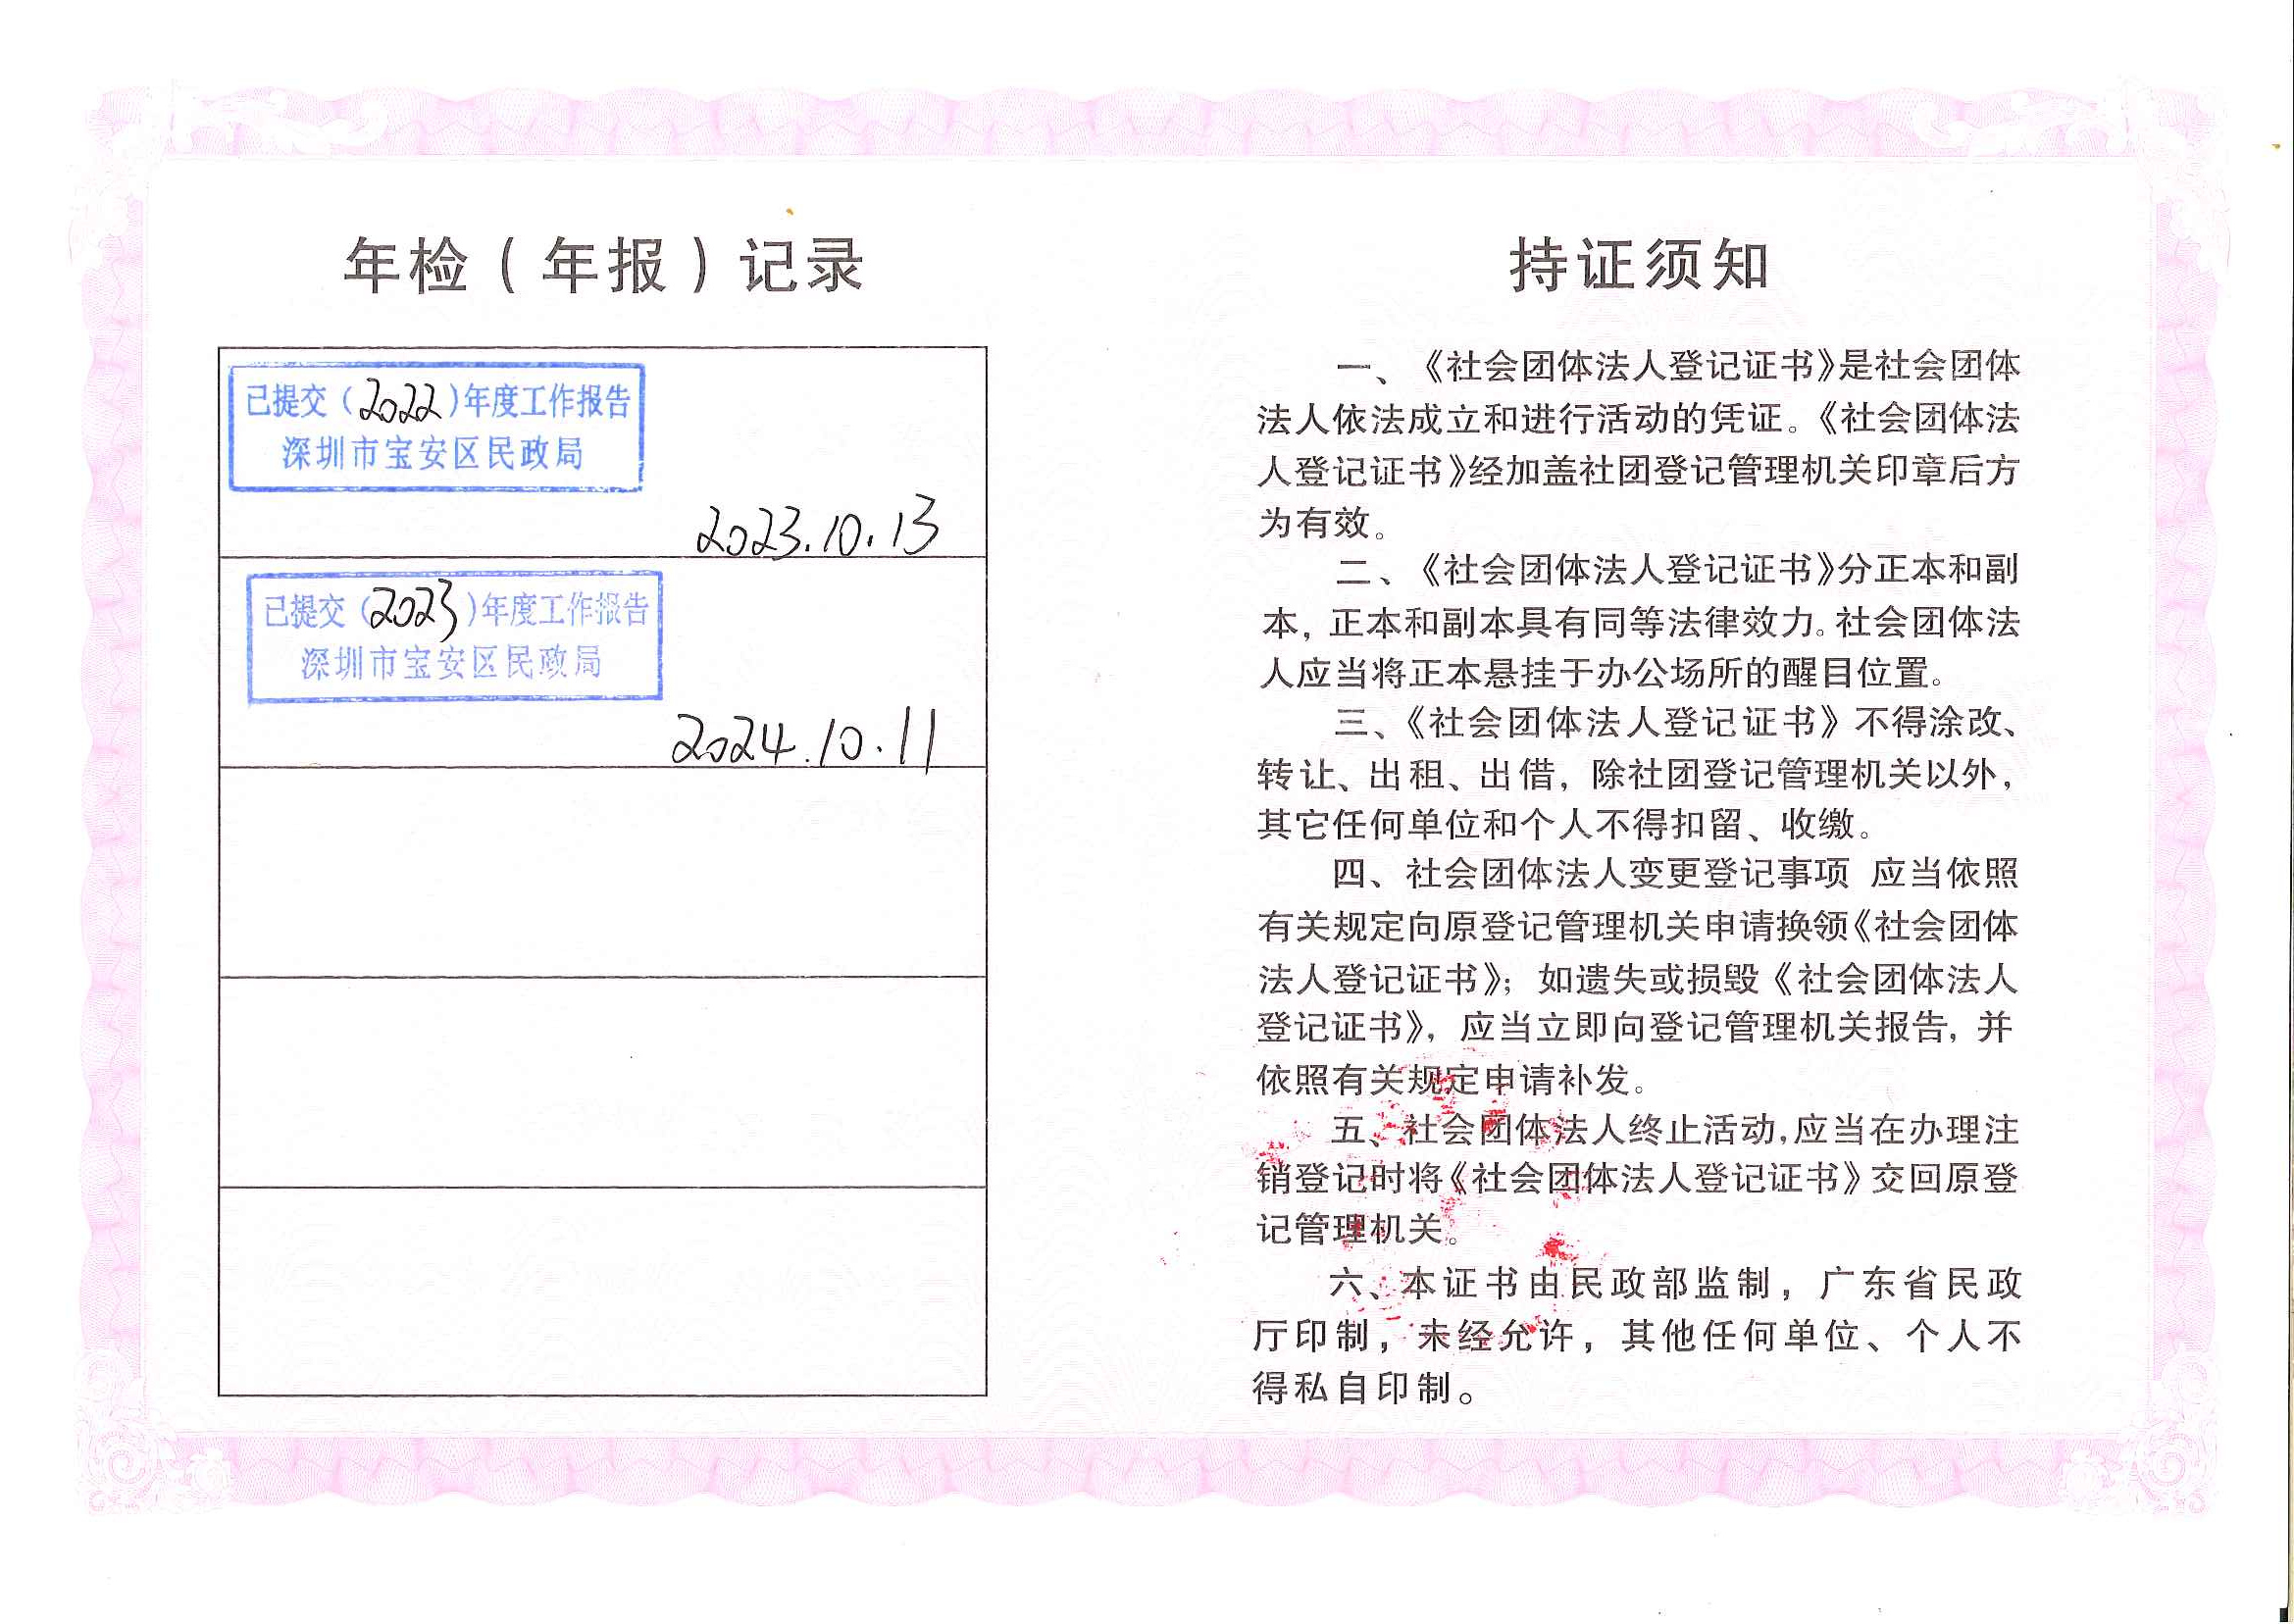 年检(年报)记录
已提交(2022)年度工作报告
深圳市宝安区民政局
2023.10.13
已提交(2023)年度工作报告
深圳市宝安区民政局
2024.10.11
持证须知
一、《社会团体法人登记证书》是社会团体
法人依法成立和进行活动的凭证。《社会团体法
人登记证书》经加盖社团登记管理机关印章后方
为有效。
二、《社会团体法人登记证书》分正本和副
本,正本和副本具有同等法律效力。社会团体法
人应当将正本悬挂于办公场所的醒目位置。
三、《社会团体法人登记证书》不得涂改、
转让、出租、出借,除社团登记管理机关以外,
其它任何单位和个人不得扣留、收缴。
四、社会团体法人变更登记事项 应当依照
有关规定向原登记管理机关申请换领《社会团体
法人登记证书》;如遗失或损毁《社会团体法人
登记证书》,应当立即向登记管理机关报告,并
依照有关规定申请补发。
五、社会团体法人终止活动,应当在办理注
销登记时将《社会团体法人登记证书》交回原登
记管理机关。
六、本证书由民政部监制,广东省民政
厅印制,未经允许,其他任何单位、个人不
得私自印制。